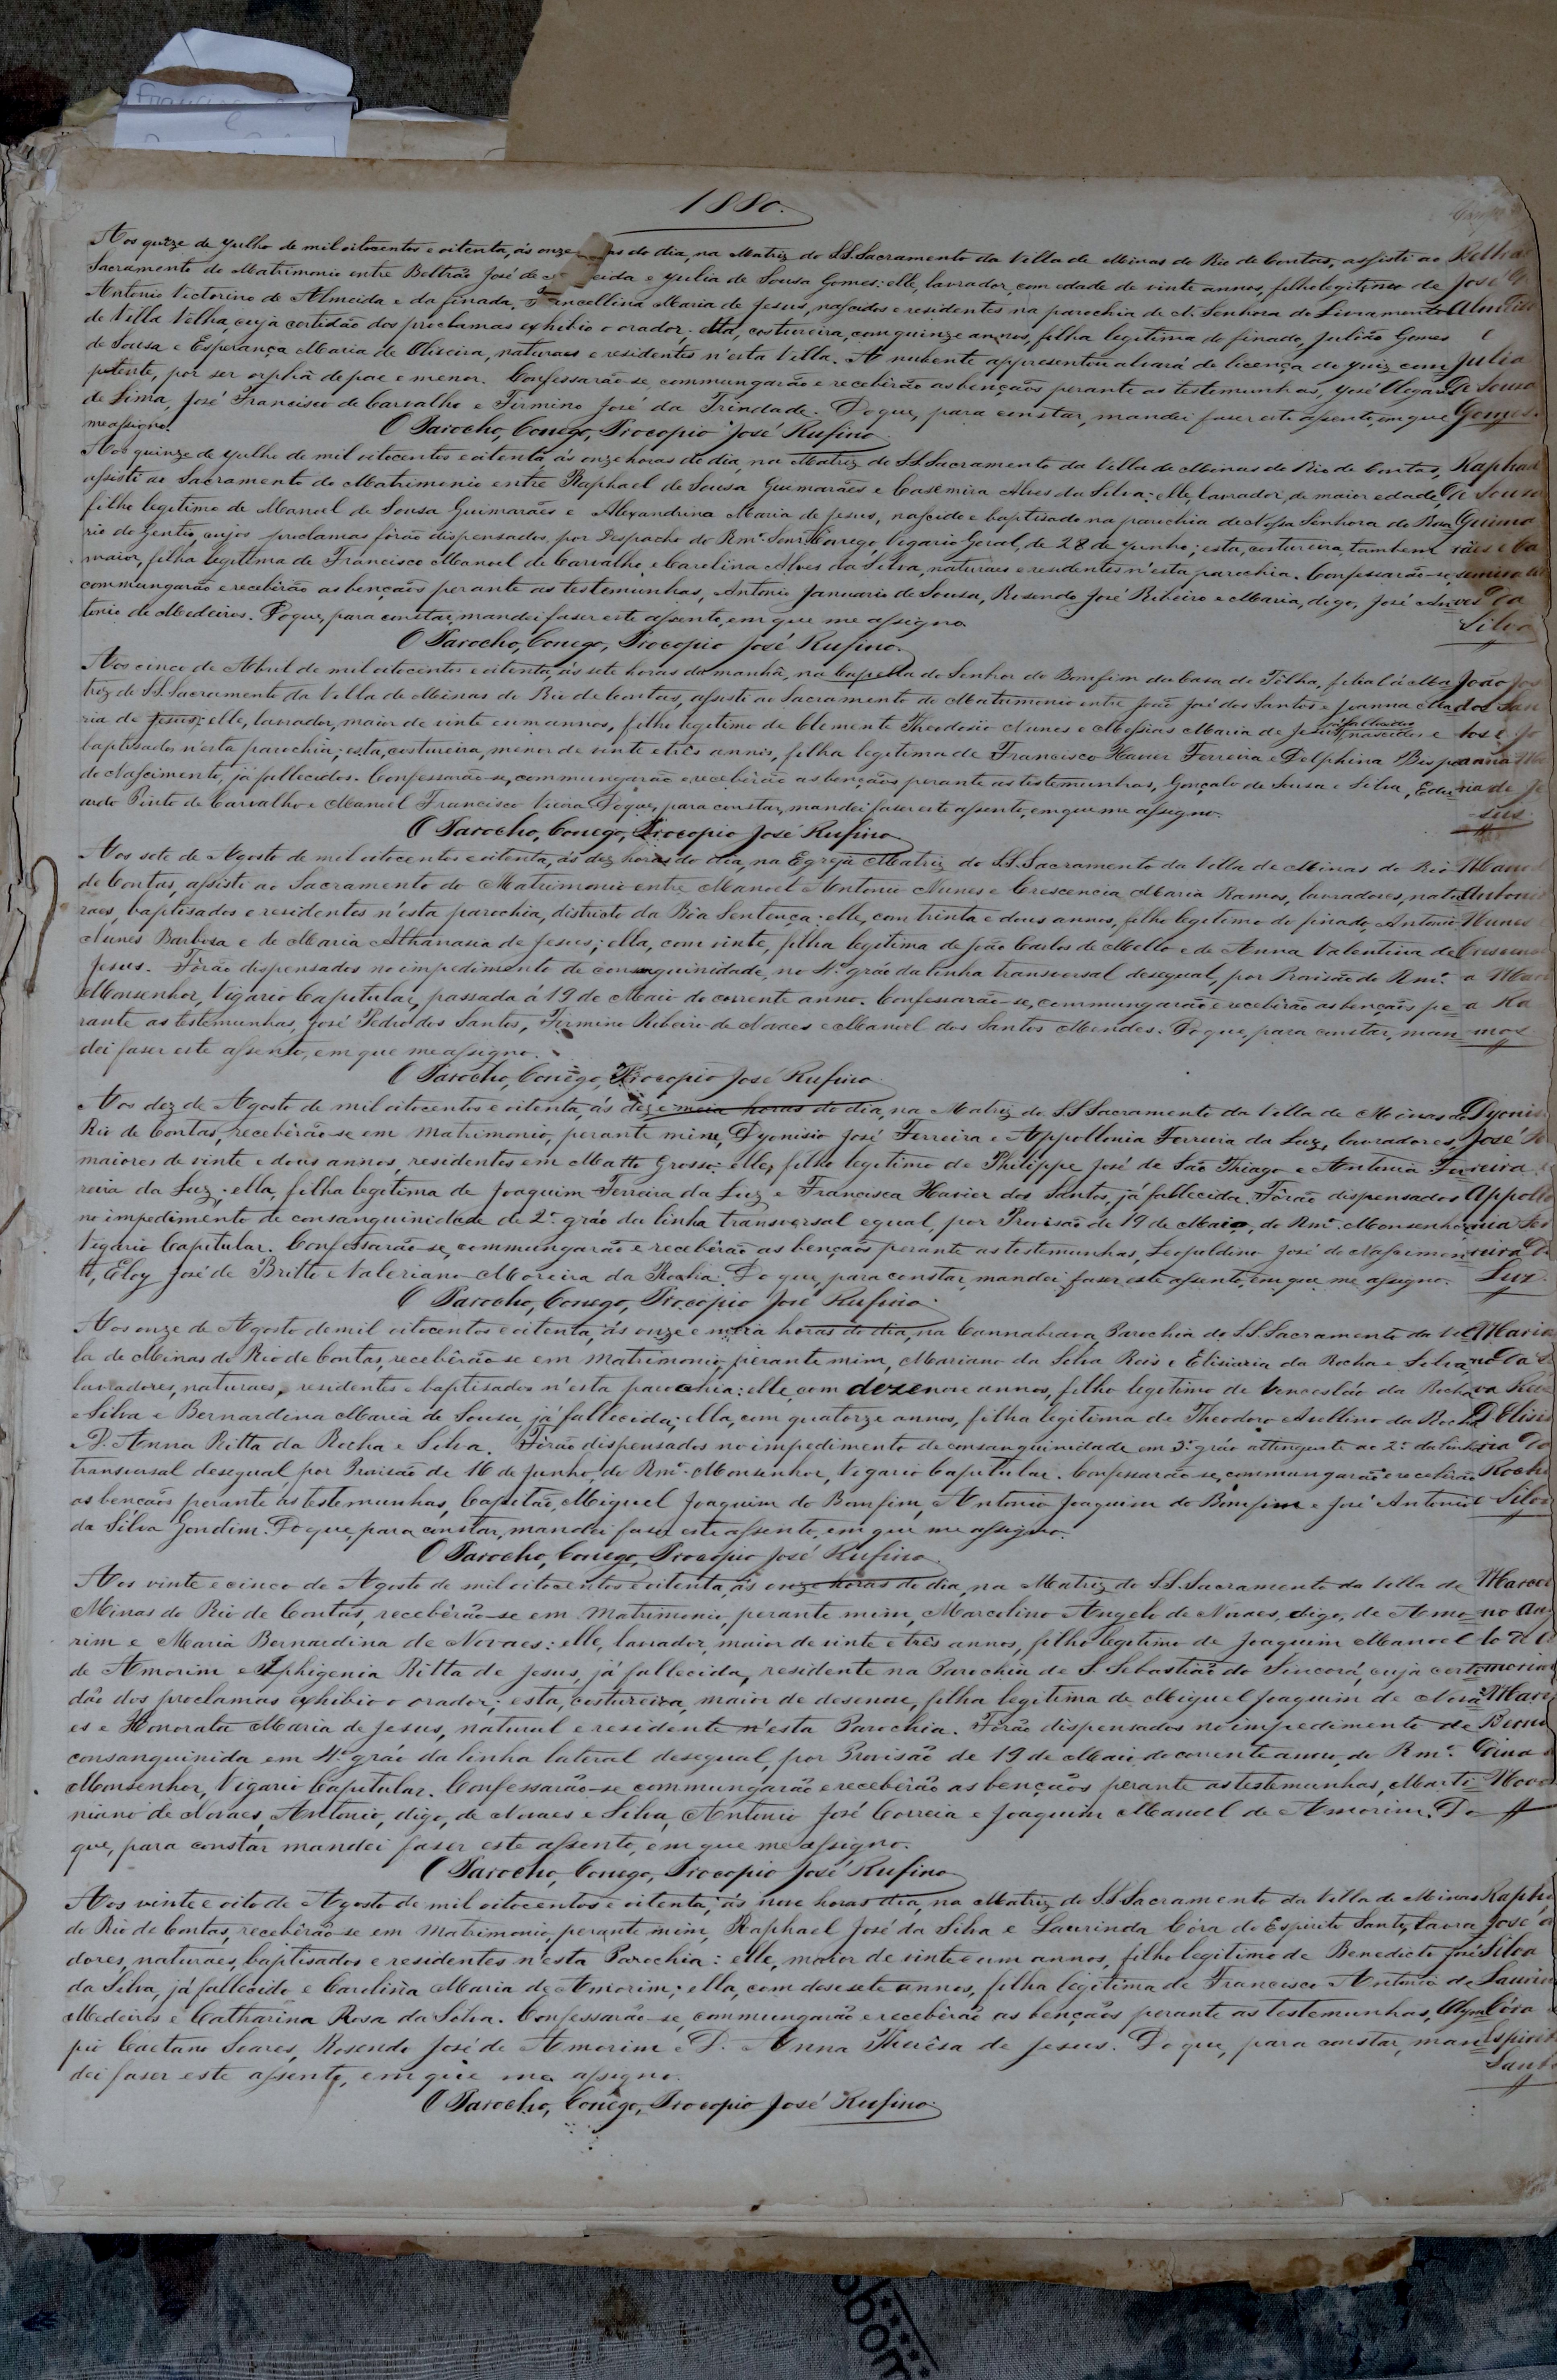 1880.
Aos quize de Julho de mil oitocentos e oitenta, ás onze do dia, na Matriz do SS. Sacramento da Villa de Minas do Rio de Contas, assisti ao
Sacramento do Matrimonio entre Beltrão José de e Julia de Sousa Gomes: elle, lavrador, com edade de vinte annos, filho legitimo de
Antonio Victorino de Almeida e da finada, Maria de Jesus, nascidos e residentes na parochia de N. Senhora do Livramento
de Villa Velha, cuja certidão dos proclamas exhibio o orador; ella, costureira, com quinze annos, filha legitima do finado, Julião Gomes
de Sousa e Esperança Maria de Oliveira, naturaes e residentes n'esta Villa. A nubente appresentou alvará de licença do Juiz com
petente, por ser orphã de pae e menor. Confessarão-se, commungarão e recebêrão as bençãos perante as testemunhas, José
de Lima, José Francisco de Carvalho e Firmino José da Trindade. Do que, para constar, mandei faser este assento, em que
me assigno.
O Parocho, Conego, Procopio José Rufino.
Beltrão
José
Almeida
e
Julia
de Sousa
Gomes
Aos quinze de Julho de mil oitocentos e oitenta ás onze horas do dia, na Matriz do SS. Sacramento da Villa de Minas do Rio de Contas,
assisti ao Sacramento do Matrimonio entre Raphael de Sousa Guimarães e Casemira Alves da Silva: elle, lavrador, de maior edade,
filho legitimo de Manoel de Sousa Guimarães e Alexandrina Maria de Jesus, nascido e baptisado na parochia de Nossa Senhora do Rosa
rio do Gentio, cujos proclamas fôrão dispensados, por Despacho do Rmº. Senr. Conego, Vigario Geral, de 28 de Junho; esta, costureira, tambem
maior, filha legitima de Francisco Manoel de Carvalho e Carolina Alves da Silva, naturaes e residentes n'esta parochia. Confessarão-se,
commungarão e recebêrão as bençãos perante as testemunhas, Antonio Januario de Sousa, Rosendo José Ribeiro e Maria, digo, José An
tonio de Medeiros. Do que, para constar, mandei faser este assento, em que me assigno.
O Parocho, Conego, Procopio José Rufino.
Raphael
de Sousa
Guima
rães e Ca
semira Al
ves da
Silva
Aos cinco de Abril de mil oitocentos e oitenta, ás sete horas da manhã, na Capella do Senhor do Bomfim da Casa de Têlha, filial á Ma
triz do SS. Sacramento da Villa de Minas do Rio de Contas, assisti ao Sacramento do Matrimonio entre João José dos Santos e Joanna Ma
ria de Jesus: elle, lavrador, maior de vinte e um annos, filho legitimo de Clemente Theodosio Nunes e Messias Maria de Jesus, já fallecidos nascidos e
baptisados n'esta parochia; esta, costureira, menor de vinte e três annos, filha legitima de Francisco Xavier Ferreira e Delphina
do Nascimento, já fallecidos. Confessarão-se, commungarão e recebêrão as bençãos perante as testemunhas, Gonçalo de Sousa e Silva, Edu
ardo Pinto de Carvalho e Manoel Francisco Vieira. Do que, para constar, mandei faser este assento, em que me assigno.
O Parocho, Conego, Procopio José Rufino.
João Jos
dos San
tos e Jo
anna Ma
ria de Je
sus
Aos sete de Agosto de mil oitocentos e oitenta, ás dez horas do dia, na Egreja Matriz do SS. Sacramento da Villa de Minas do Rio
de Contas, assisti ao Sacramento do Matrimonio entre Manoel Antonio Nunes e Crescencia Maria Ramos, lavradores, natu
raes, baptisados e residentes n'esta parochia, districto da Bôa Sentença: elle, com trinta e dous annos, filho legitimo do finado, Antonio
Nunes Barbosa e de Maria Athanasia de Jesus; ella, com vinte, filha legitima de João Carlos de Mello e de Anna Valentina de
Jesus. Fôrão dispensados no impedimento de consanguinidade, no 4º gráo da linha transversal desegual, por Provisão do Rmº.
Monsenhor, Vigario Capitular, passada á 19 de Maio do corrente anno. Confessarão-se, commungarão e recebêrão as bençãos pe
rante as testemunhas, José Pedro dos Santos, Firmino Ribeiro de Novaes e Manoel dos Santos Mendes. Do que, para constar, man
dei faser este assento, em que me assigno.
O Parocho, Conego, Procopio José Rufino.
Manoel
Antonio
Nunes
Crescenci
a Mari
a Ra
mos
Aos dez de Agosto de mil oitocentos e oitenta, ás dez e meia horas do dia, na Matriz do SS Sacramento da Villa de Minas do
Rio de Contas, recebêrão-se em Matrimonio, perante mim, Dyonisio José Ferreira e Appollonia Ferreira da Luz, lavradores,
maiores de vinte e dous annos, residentes em Matto Grosso: elle, filho legitimo de Philippe José de São Thiago e Antonia Fer
reira da Luz; ella, filha legitima de Joaquim Ferreira da Luz e Francisca Xavier dos Santos, já fallecida. Fôrão dispensados
no impedimento de consanguinidade de 2º. gráo da linha transversal egual, por Provisão de 19 de Maio, do Rmº. Monsenhor
Vigario Capitular. Confessarão-se, commungarão e recebêrão as bençãos perante as testemunhas, Leopoldino José do Nascimen
to, Eloy José de Britto e Valeriano Moreira da Rocha. Do que, para constar, mandei faser este assento, em que me assigno.
O Parocho, Conego, Procopio José Rufino.
Dyonisi
José Fe
reira e
Appollo
nia Fer
reira da
Luz
Aos onze de Agosto de mil oitocentos e oitenta, ás onze e meia horas do dia, na Cannabrava, Parochia do SS. Sacramento da Vil
la de Minas do Rio de Contas, recebêrão-se em Matrimonio, perante mim, Mariano da Silva Reis e Elisiaria da Rocha e Silva,
lavradores, naturaes, residentes e baptisados n'esta parochia: elle, com dezenove annos, filho legitimo de Vencesláo da Rocha
e Silva e Bernardina Maria de Sousa, já fallecida; ella, com quatorze annos, filha legitima de Theodoro Avellino da Rocha
D. Anna Ritta da Rocha e Silva. Fôrão dispensados no impedimento de consanguinidade em 3º. gráo attingente ao 2º. da linha
transversal desegual, por Provisão de 16 de Junho, do Rmº. Monsenhor, Vigario Capitular. Confessarão-se, commungarão e recebêrão
as bençãos perante as testemunhas, Capitão, Miguel Joaquim do Bomfim, Antonio Joaquim do Bomfim e José Antonio
da Silva Gondim. Do que, para constar, mandei faser este assento, em que me assigno.
O Parocho, Conego, Procopio José Rufino.
Maria
no da Sil
va Reis
D. Elisia
ria da
Rocha
e Silva
Aos vinte e cinco de Agosto de mil oitocentos e oitenta, ás onze horas do dia, na Matriz do SS. Sacramento da Villa de
Minas do Rio de Contas, recebêrão-se em Matrimonio, perante mim, Marcolino Angelo de Novaes, digo, de Amo
rim e Maria Bernardina de Novaes: elle, lavrador, maior de vinte e três annos, filho legitimo de Joaquim Manoel
de Amorim e Iphigenia Ritta de Jesus, já fallecida, residente na Parochia de S. Sebastião do Sincorá, cuja certi
dão dos proclamas exhibio o orador; esta, costureira, maior de desenove, filha legitima de Miguel Joaquim de Nova
es e Honorata Maria de Jesus, natural e residente n'esta Parochia. Fôrão dispensados no impedimento de
consanguinida em 4º. gráo da linha lateral desegual, por Provisão de 19 de Maio do corrente anno, do Rmº.
Monsenhor, Vigario Capitular. Confessarão-se commungarão e recebêrão as bençãos perante as testemunhas, Marti
niano de Novaes, Antonio, digo, de Novaes e Silva, Antonio José Correia e Joaquim Manoel de Amorim. Do
que, para constar mandei faser este assento, em que me assigno.
O Parocho, Conego, Procopio José Rufino
Marcol
no An
lo de A
morim
Mari
Berna
dina
Nova
Aos vinte e oito de Agosto de mil oitocentos e oitenta, ás nove horas dia, na Matriz do SS. Sacramento da Villa de Minas
do Rio de Contas, recebêrão-se em Matrimonio, perante mim, Raphael José da Silva e Laurinda Córa do Espirito Santo, lavra
dores, naturaes, baptisados e residentes n'esta Parochia: elle, maior de vinte e um annos, filho legitimo de Benedicto José
da Silva, já fallecido e Carolina Maria de Amorim; ella, com desesete annos, filha legitima de Francisco Antonio de
Medeiros e Catharina Rosa da Silva. Confessarão-se, commungarão e recebêrão as bençãos perante as testemunhas, Olym
pio Caetano Soares, Rosendo José de Amorim e D. Anna Therêsa de Jesus. Do que, para constar, man
dei faser este assento, em que me assigno.
O Parocho, Conego, Procopio José Rufino.
Rapha
José d
Silva
Laurin
Córa
Espirit
Santo